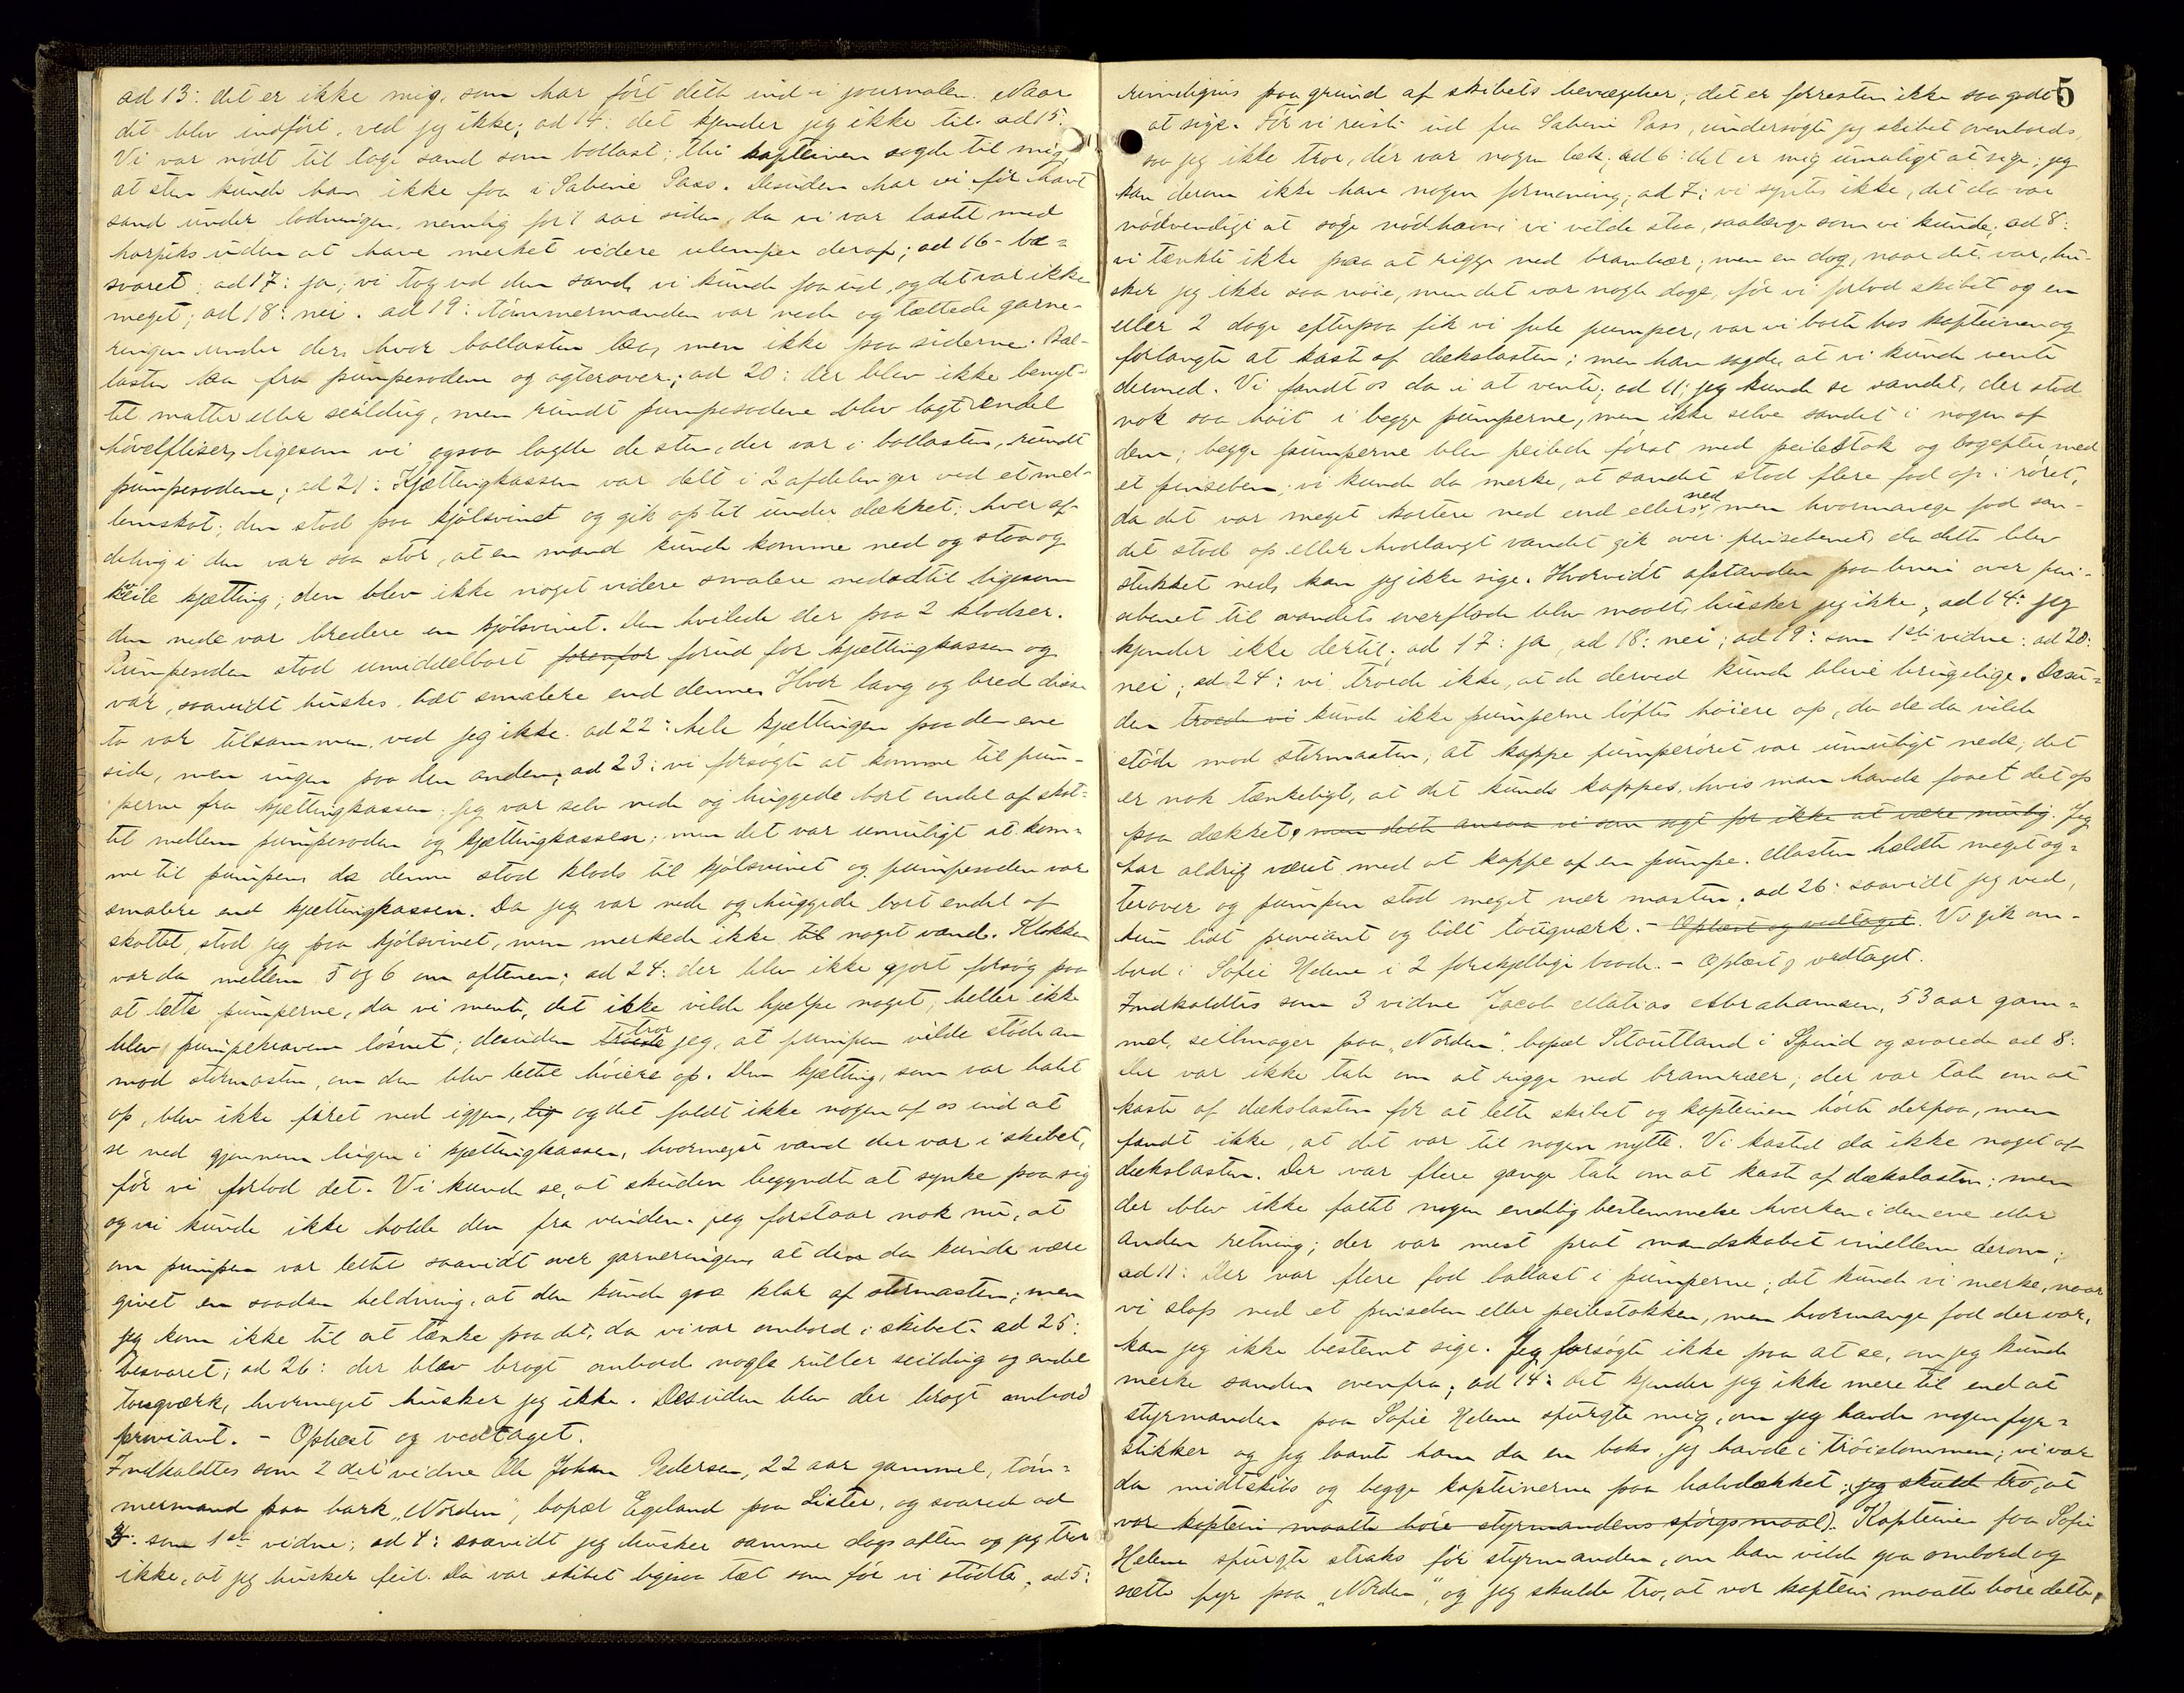 ad 13: det er ikke mig, som har ført dette ind i journalen. Naar
det blev indført, ved jeg ikke; ad 14: det kjender jeg ikke til. ad 15:
Vi var nødt til tage sand som ballast; thi kapteinen sagde til mig,
at sten kunde han ikke faa i Sabine Pass. Desuden har vi før havt
sand under ladningen, nemlig for 1 aar siden, da vi var lastet med
harpiks uden at have merket videre ulemper deraf; ad 16 - be-
svaret; ad 17: ja; vi tog ud den sand, vi kunde faa ud, og det var ikke
meget; ad 18: nei. ad 19: tømmermanden var nede og tættede garne-
ringen under der, hvor ballasten laa, men ikke paa siderne. Bal-
lasten laa fra pumpesoden og agterover; ad 20: der blev ikke benyt-
tet matter eller seildug, men rundt pumpesodene blev lagt endel
høvelfliser, ligesom vi ogsaa lagde de sten, der var i ballasten, rundt
pumpesodene; ad 21: Kjættingkassen var delt i 2 afdelinger ved et mel-
lemskot; den stod paa kjølsvinet og gik op til under dækket; hver af-
deling i den var saa stor, at en mand kunde komme ned og staa og
kveile kjætting; den blev ikke noget videre smalere nedadtil ligesom
den nede var bredere en kjølsvinet. Den hvilede der paa 2 klodser.
Pumpesoden stod umiddelbart forenfor forud for kjættingkassen og
var, saavidt huskes, lidt smalere end denne. Hvor lang og bred disse
to var tilsammen, ved jeg ikke. ad 22: hele kjættingen paa den ene
side, men ingen paa den anden; ad 23: vi forsøgte at komme til pum-
perne fra kjættingkassen. jeg var selv nede og huggede bort endel af skot-
tet mellem pumpesoden og kjættingkassen; men det var umuligt at kom-
me til pumpen, da denne stod klods til kjølsvinet og pumpesoden var
smalere end kjættingkassen. Da jeg var nede og huggede bort endel af
skottet, stod jeg paa kjølsvinet, men merkede ikke til noget vand. Klokken
var da mellem 5 og 6 om aftenen; ad 24: der blev ikke gjort forsøg paa
at lette pumperne, da vi mente, det ikke vilde hjælpe noget, heller ikke
blev pumpekraven løsnet; desuden troede tror jeg, at pumpen vilde støde an
mod stormasten, om den blev lettet høiere op. Den kjætting, som var halet
op, blev ikke firet ned igjen, lig og det faldt ikke nogen af os ind at
se ned gjennem lugen i kjættingkassen, hvormeget vand der var i skibet,
før vi forlod det. Vi kunde se, at skuden begyndte at synke paa sig
og vi kunde ikke holde den fra vinden. jeg forstaar nok nu, at
om pumpen var lettet saavidt over garneringen, at den da kunde være
givet en saadan heldning, at den kunde gaa klar af stormasten; men
jeg kom ikke til at tænke paa det, da vi var ombord i skibet. ad 25:
besvaret; ad 26: der blev bragt ombord nogle ruller seildug og endel
tougværk, hvormeget husker jeg ikke. Desuden blev der bragt ombord
proviant. - Oplæst og vedtaget.
Indkaldtes som 2det vidne Ole Johan Pedersen, 22 aar gammel, tøm-
mermand paa bark "Norden", bopæl Egeland paa Lister, og svarede ad
3: som 1ste vidne; ad 4: saavidt jeg husker samme dags aften og jeg tror
ikke, at jeg husker feil. Da var skibet ligesaa tæt som før vi stødte. ad 5:
5
rimeligvis paa grund af skibets bevægelser; det er forresten ikke saa godt
at sige. Før vi reiste ud fra Sabine Pass, undersøgte jeg skibet ovenbords,
saa jeg ikke tror, der var nogen læk; ad 6: det er mig umuligt at sige; jeg
kan derom ikke have nogen formening; ad 7: vi syntes ikke, det da var
nødvendigt at søge nødhavn; vi vilde staa, saalænge som vi kunde; ad 8:
vi tænkte ikke paa at rigge ned bramræer; men en dag, naar det var, hu-
sker jeg ikke saa nøie, men det var nogle dage, før vi forlod skibet og en
eller 2 dage efterpaa fik vi fule pumper, var vi borte hos kapteinen og
forlangte at kaste af dækslasten; men han sagde, at vi kunde vente
dermed. Vi fandt os da i at vente; ad 11: jeg kunde se vandet, der stod
nok saa høit i begge pumperne, men ikke selve sandet i nogen af
dem; begge pumperne blev peilede først med peilestok og bagefter med
et peisebem; vi kunde da merke, at sandet stod flere fod op i røret,
da det var meget kortere ned end ellers ned, men hvormange fod san-
det stod op eller hvorlangt vandet gik over peisebenet, da dette blev
stukket ned, kan jeg ikke sige. Hvorvidt afstanden paa linen over pei-
sebenet til vandets overflade blev maalt, husker jeg ikke, ad 14: jeg
kjender ikke dertil; ad 17: ja, ad 18: nei; ad 19: som 1ste vidne: ad 20:
nei; ad 24: vi troede ikke, at de derved kunde blive brugelige. Desu-
den troede vi kunde ikke pumperne løftes høiere op, da de da vilde
støde mod stormasten; at kappe pumperøret var umuligt nede; det
er nok tænkeligt, at det kunde kappes, hvis man havde faaet det op
paa dækket, men dette ansaa vi som sagt for ikke at være mulig. Jeg
har aldrig været med at kappe af en pumpe. Masten hældte meget ag-
terover og pumpen stod meget nær masten; ad 26: saavidt jeg ved,
kun lidt proviant og lidt tougværk. - Oplæst og vedtaget. Vi gik om-
bord i Sofie Helene i 2 forskjellige baade. - Oplæst og vedtaget.
Indkaldtes som 3 vidne Jacob Matias Abrahamsen, 53 aar gam-
mel, seilmager paa "Norden", bopæl Stoutland i Spind og svarede ad 8:
Der var ikke tale om at rigge ned bramræer; der var tale om at
kaste af dækslasten for at lette skibet og kapteinen hørte derpaa, men
fandt ikke, at det var til nogen nytte. Vi kasted da ikke noget af
dækslasten. Der var flere gange tale om at kaste af dækslasten; men
der blev ikke fattet nogen endelig bestemmelse hverken i den ene eller
anden retning; der var mest prat mandskabet imellem derom;
ad 11: Der var flere fod ballast i pumperne; det kunde vi merke, naar
vi slap ned et peiseben eller peilestokken, men hvormange fod der var,
kan jeg ikke bestemt sige. Jeg forsøgte ikke paa at se, om jeg kunde
merke sanden ovenfra; ad 14: det kjender jeg ikke mere til end at
styrmanden paa Sofie Helene spurgte mig, om jeg havde nogen fyr-
stikker og jeg laante ham da en boks, jeg havde i trøielommen; vi var
da midtskibs og begge kapteinerne paa halvdækket; jeg skulde tro, at
vor kaptein maatte høre styrmandens spørgsmaal). Kapteinen paa Sofie
Helene spurgte straks før styrmanden, om han vilde gaa ombord og
sætte fyr paa "Norden", og jeg skulde tro, at vor kaptein maatte høre dette,